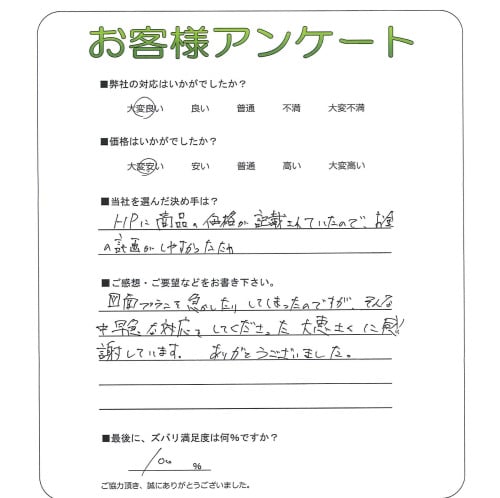 お客様アンケート
■弊社の対応はいかがでしたか？
大変良い 良い 普通 不満 大変不満
■価格はいかがでしたか？
大変安い 安い 普通 高い 大変高い
■当社を選んだ決め手は？
HPに商品の価格が記載されていたので、お金
の計画がしやすかったため
■ご感想・ご要望などをお書き下さい。
図面プランを急がしたりしてしまったのですが、そんな
中早急な対応をしてくださった大恵さんに感
謝しています。 ありがとうございました。
■最後に、ズバリ満足度は何%ですか？
100 %
ご協力頂き、誠にありがとうございました。